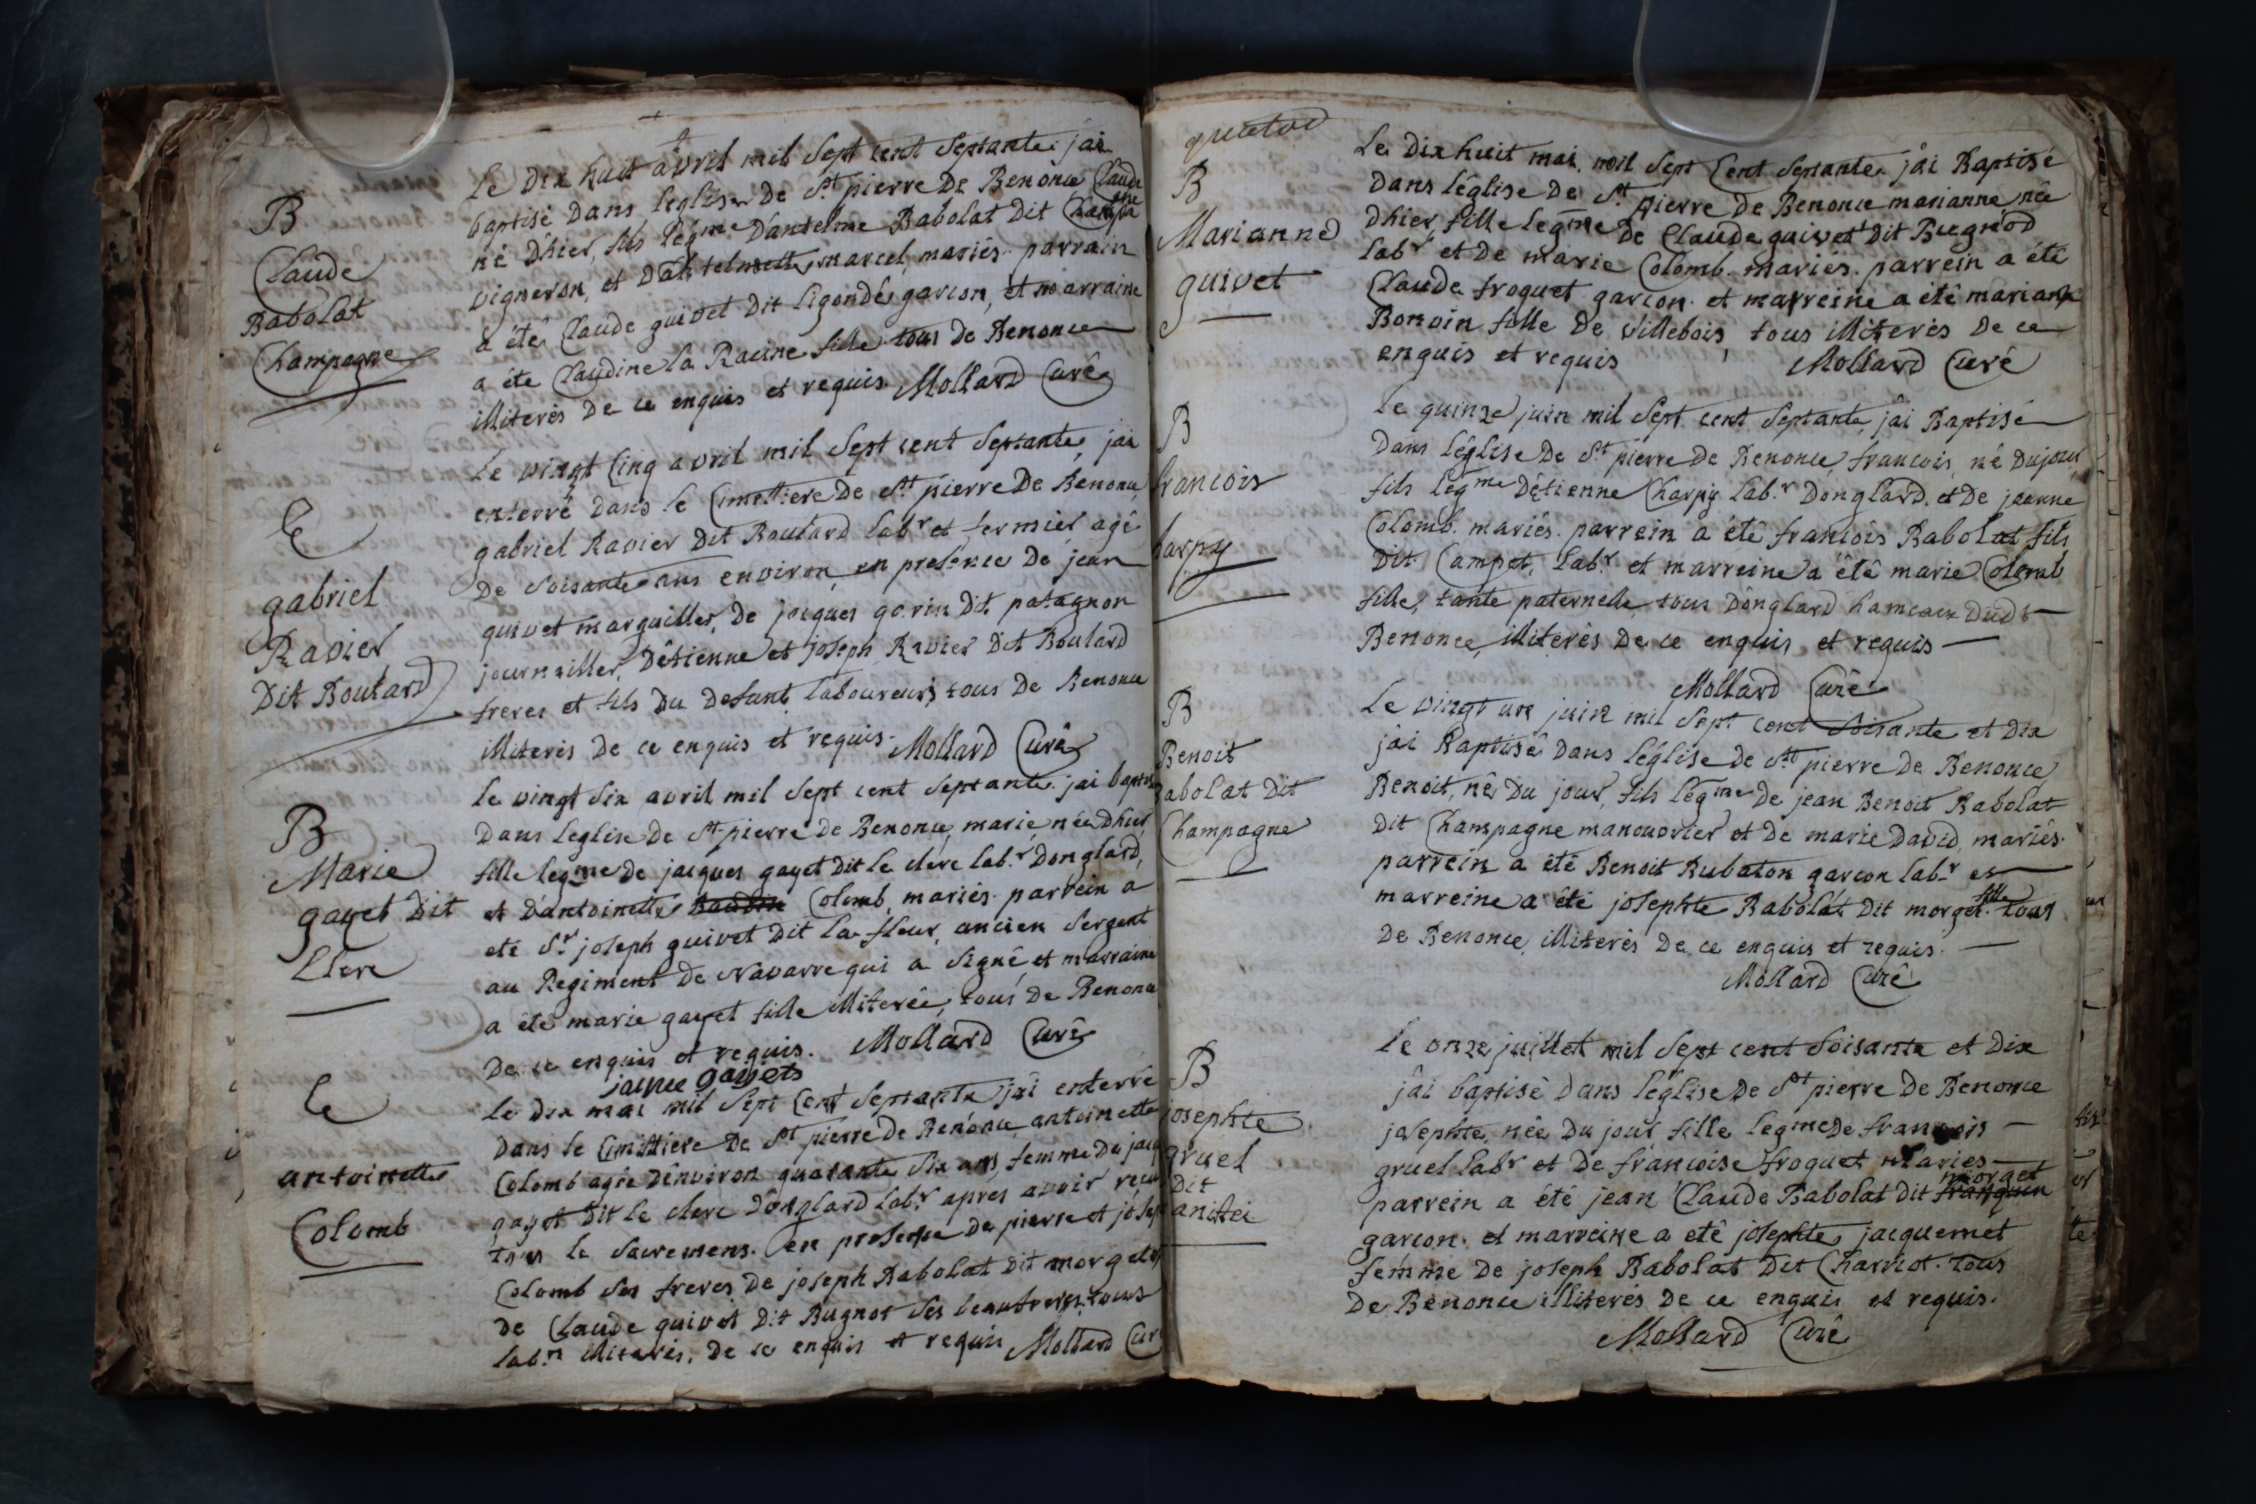 B
Claude
Rabolat
Champagne
Le Dix huit avril mil Sept cent Septante jai
baptisé Dans leglise De St pierre De Benonce Claude
né D'hier, fils legme D'antelme Rabolat Dit Champagne
vigneron, et D'antelmette marcel, mariés. parrain
a été Claude guivet Dit Ligonde garcon, et marraine
a éte Claudine la Racine fille tous de Benonce
illiterés De ce enquis et requis. Mollard Curé
E
gabriel
Ravier
Dit Boulard
Le vingt Cinq avril mil Sept cent Septante, jai
enterré Dans le Cimettiere De St pierre De Benonce
gabriel Ravier Dit Boulard labr et fermier agé
De Soisante ans environ, en presence De jean
guivet marguiller, De jacques gorin Dit patagnon
journailler, D'etienne et joseph Ravier Dit Boulard
freres et fils Du Defunt laboureurs, tous De Benonce
illiterés De ce enquis et requis. Mollard Curé
B
Marie
gayet Dit
Clerc
Le vingt Six avril mil Sept cent Septante. jai baptisé
Dans leglise De St pierre De Benonce, marie née Dhier
fille legme De jacques gayet Dit le clerc labr Donglard,
et D'antoinette Colomb, mariés. parrein a
eté Sr joseph guivet Dit la fleur, ancien Sergent
au Regiment De Navarre qui a Signé et marraine
a été marie gayet fille illiterée, tous De Benonce
De ce enquis et requis. Mollard Curé
jaque gayets
E
antoinette
Colomb
Le Dix mai mil Sept Cent Septante jai enterré
Dans le Cimittiere De St pierre De Benonce antoinette
Colomb agée D'environ quarante Six ans, femme Du jacq
gayet Dit le clerc D'onglard labr apres avoir recu
tous le Sacremens. en presence De pierre et josep
Colomb Ses freres, De joseph Rabolat Dit morget et
De Claude guivet Dit Bugnot Ses beaufreres, tous
labrs illiterés, De ce enquis et requis Mollard Cur
B
Marianne
guivet
Le Dix huit mai mil Sept Cent Septante. jai Baptisé
Dans l'église De St pierre De Benonce marianne née
D'hier, fille legme De Claude guivet Dit Bugnod
labr et De marie Colomb. mariés. parrein a été
Claude froquet garcon. et marreine a été marianne
Bonvin fille De villebois, tous illiterés De ce
enquis et requis Mollard Curé
B
francois
harpy
Le quinze juin mil Sept cent Septante, jai Baptisé
Dans l'église De St pierre De Benonce, francois, né Dujour,
fils legme D'etienne Charpy labr D'onglard. et De jeanne
Colomb. mariés. parrein a été francois Rabolat fils
Dit Campet, labr et marreine a été marie Colomb
fille, tante paternelle, tous D'onglard hameau Dudt
Benonce, illiterés De ce enquis et requis
Mollard Curé
B
Benoit
abolat Dit
Champagne
Le vingt un juin mil Sept cent Soisante et Dix
jai Baptisé Dans l'église De St pierre De Benonce
Benoit, né Du jour, fils legme De jean Benoit Rabolat
Dit Champagne manouvrier et De marie David, mariés.
parrein a été Benoit Rubaton garcon labr et
marreine a été josephte Rabolat Dit morget. fille tous
De Benonce, illiterés De ce enquis et requis.
Mollard Curé
B
josephte
gruel
Dit
Le onze juillet mil Sept cent Soisante et Dix
j'ai baptisé Dans l'église De St pierre De Benonce
josephte, née Du jour, fille legme De francois
gruel labr et De francoise froquet mariés
parrein a été jean Claude Rabolat Dit franquin morget
garcon. et marreine a eté josephte jacquemet
femme De joseph Rabolat Dit Charriot. tous
De Benonce illiteres De ce enquis et requis.
Mollard Curé